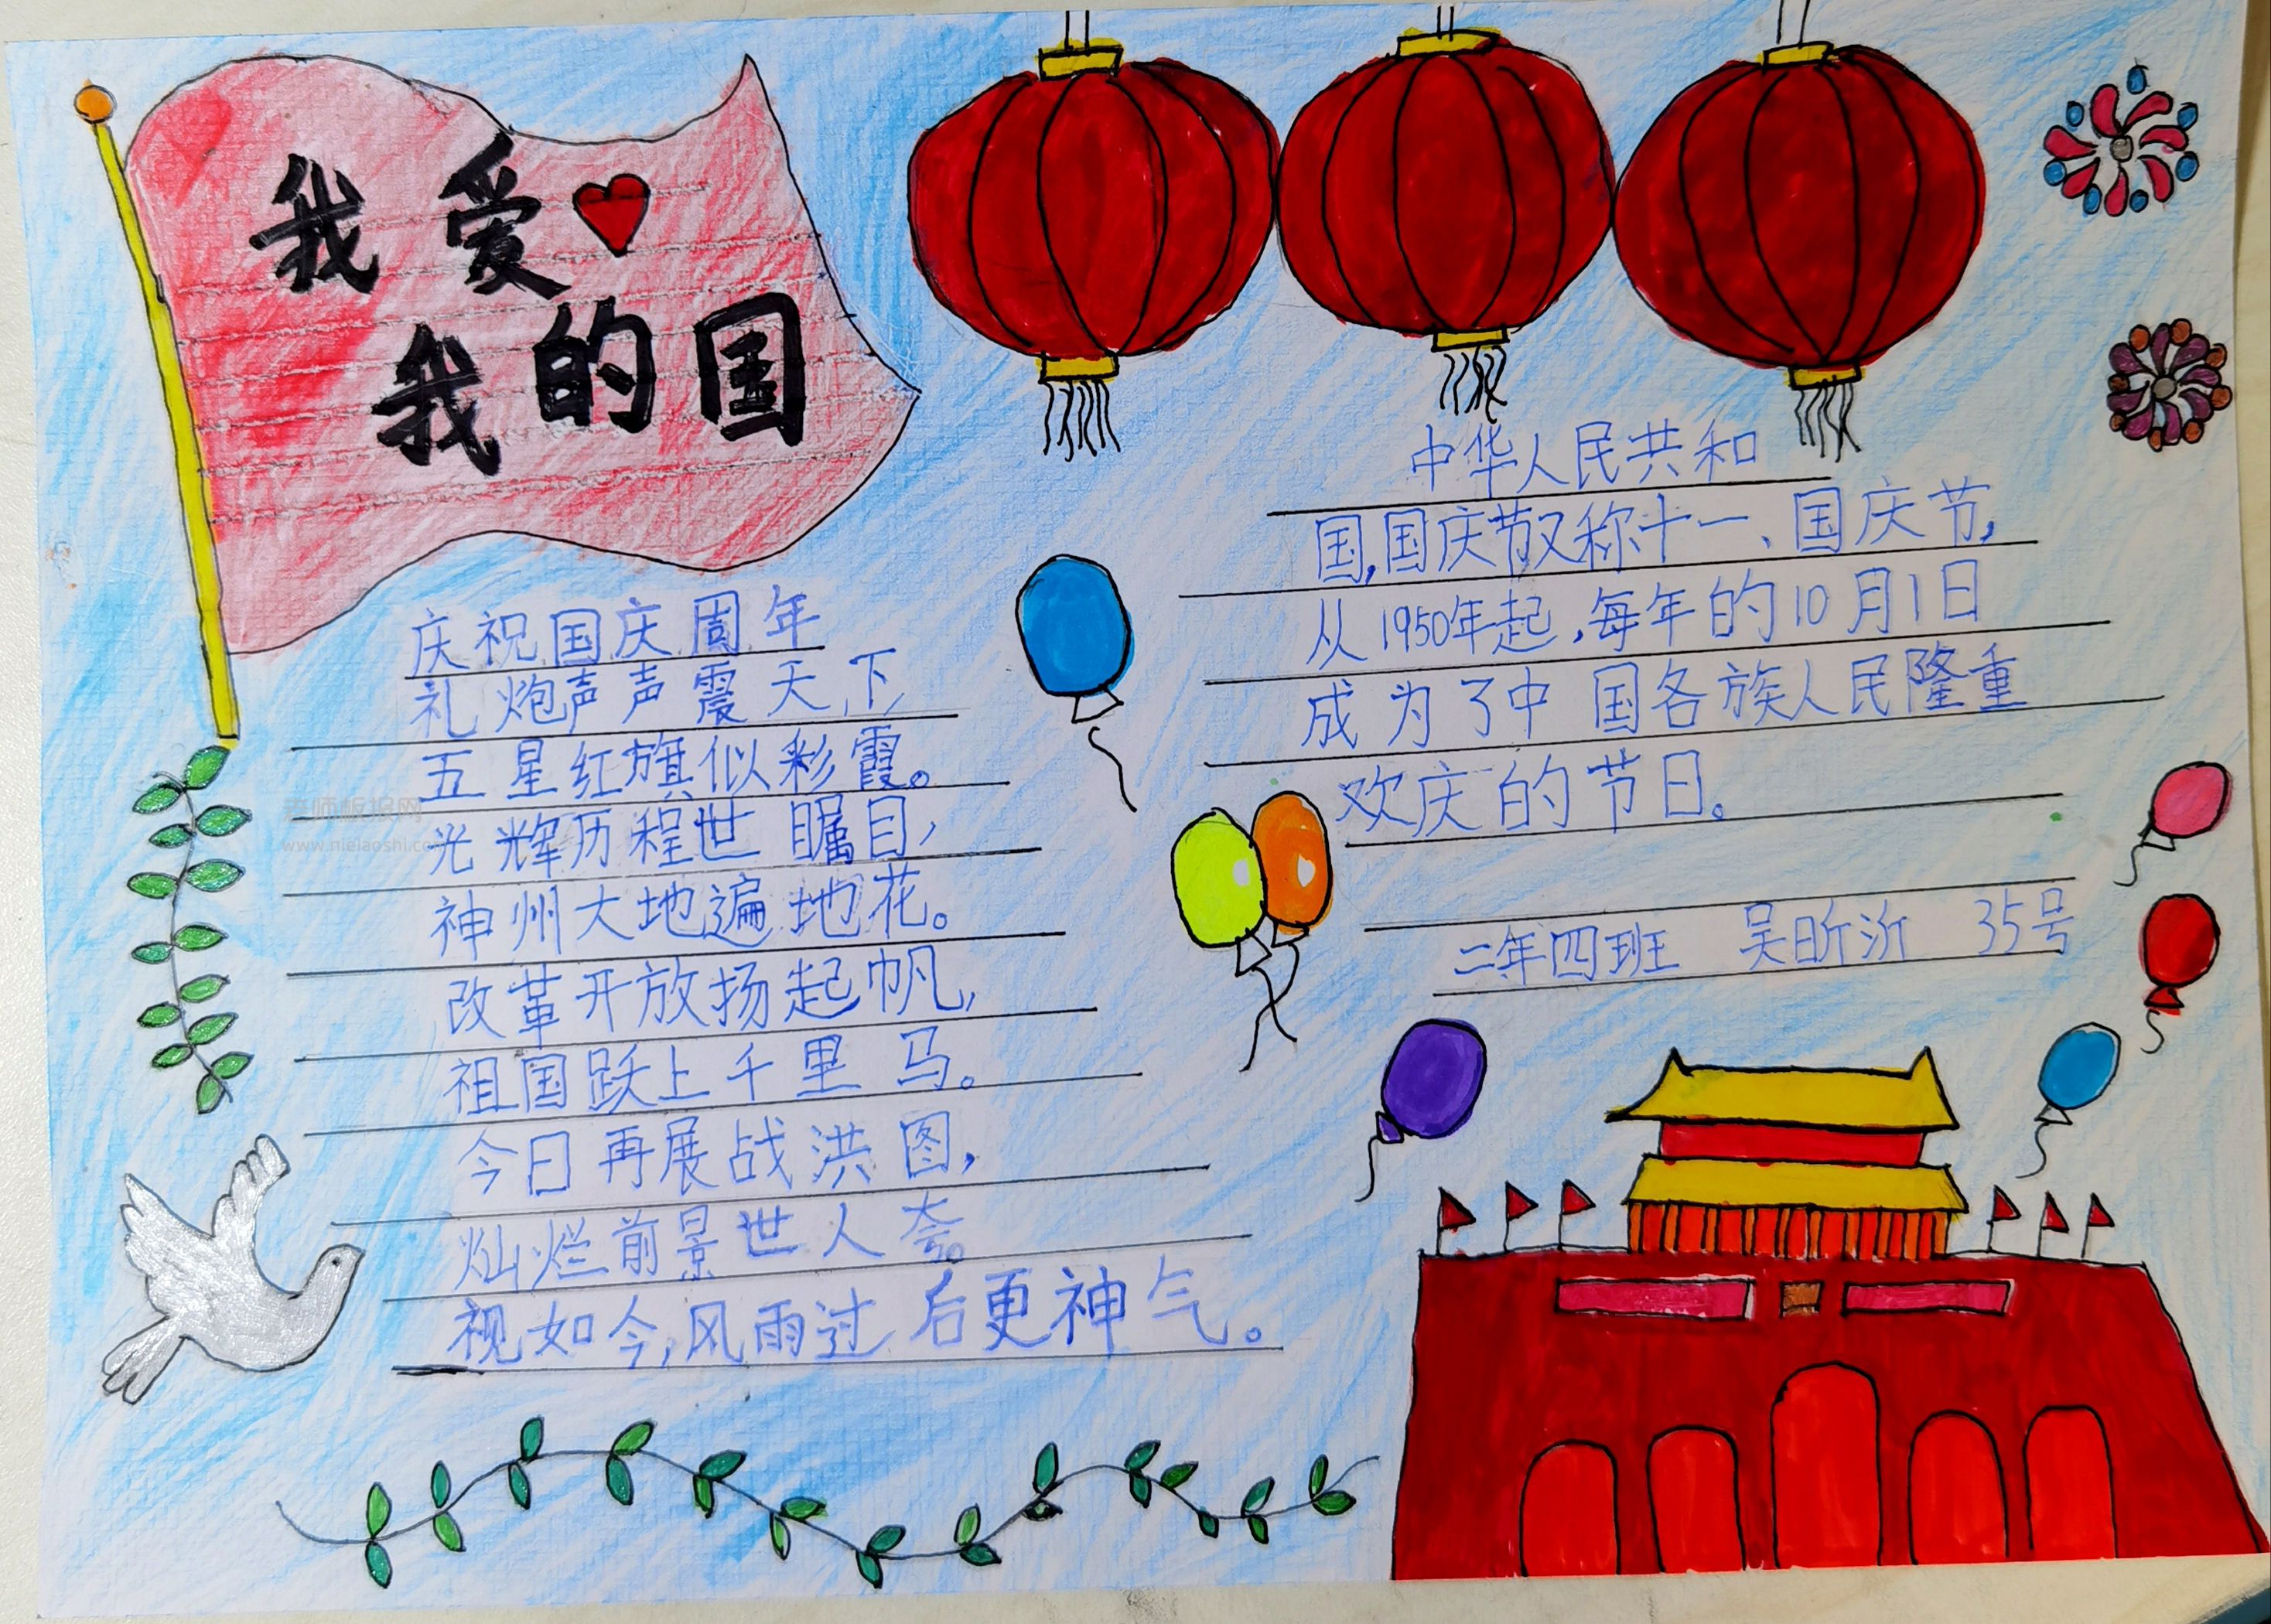 我爱
我的国
庆祝国庆周年
礼炮声声震天下,
五星红旗似彩霞。
光辉历程世瞩目,
神州大地遍地花。
改革开放扬起帆,
祖国跃上千里马。
今日再展战洪图,
灿烂前景世人夸。
视如今,风雨过后更神气。
中华人民共和
国,国庆节又称十一、国庆节,
从1950年起,每年的10月1日
成为了中国各族人民隆重
欢庆的节日。
二年四班 吴昕沂 35号
老师板报网
www.nielaoshi.com